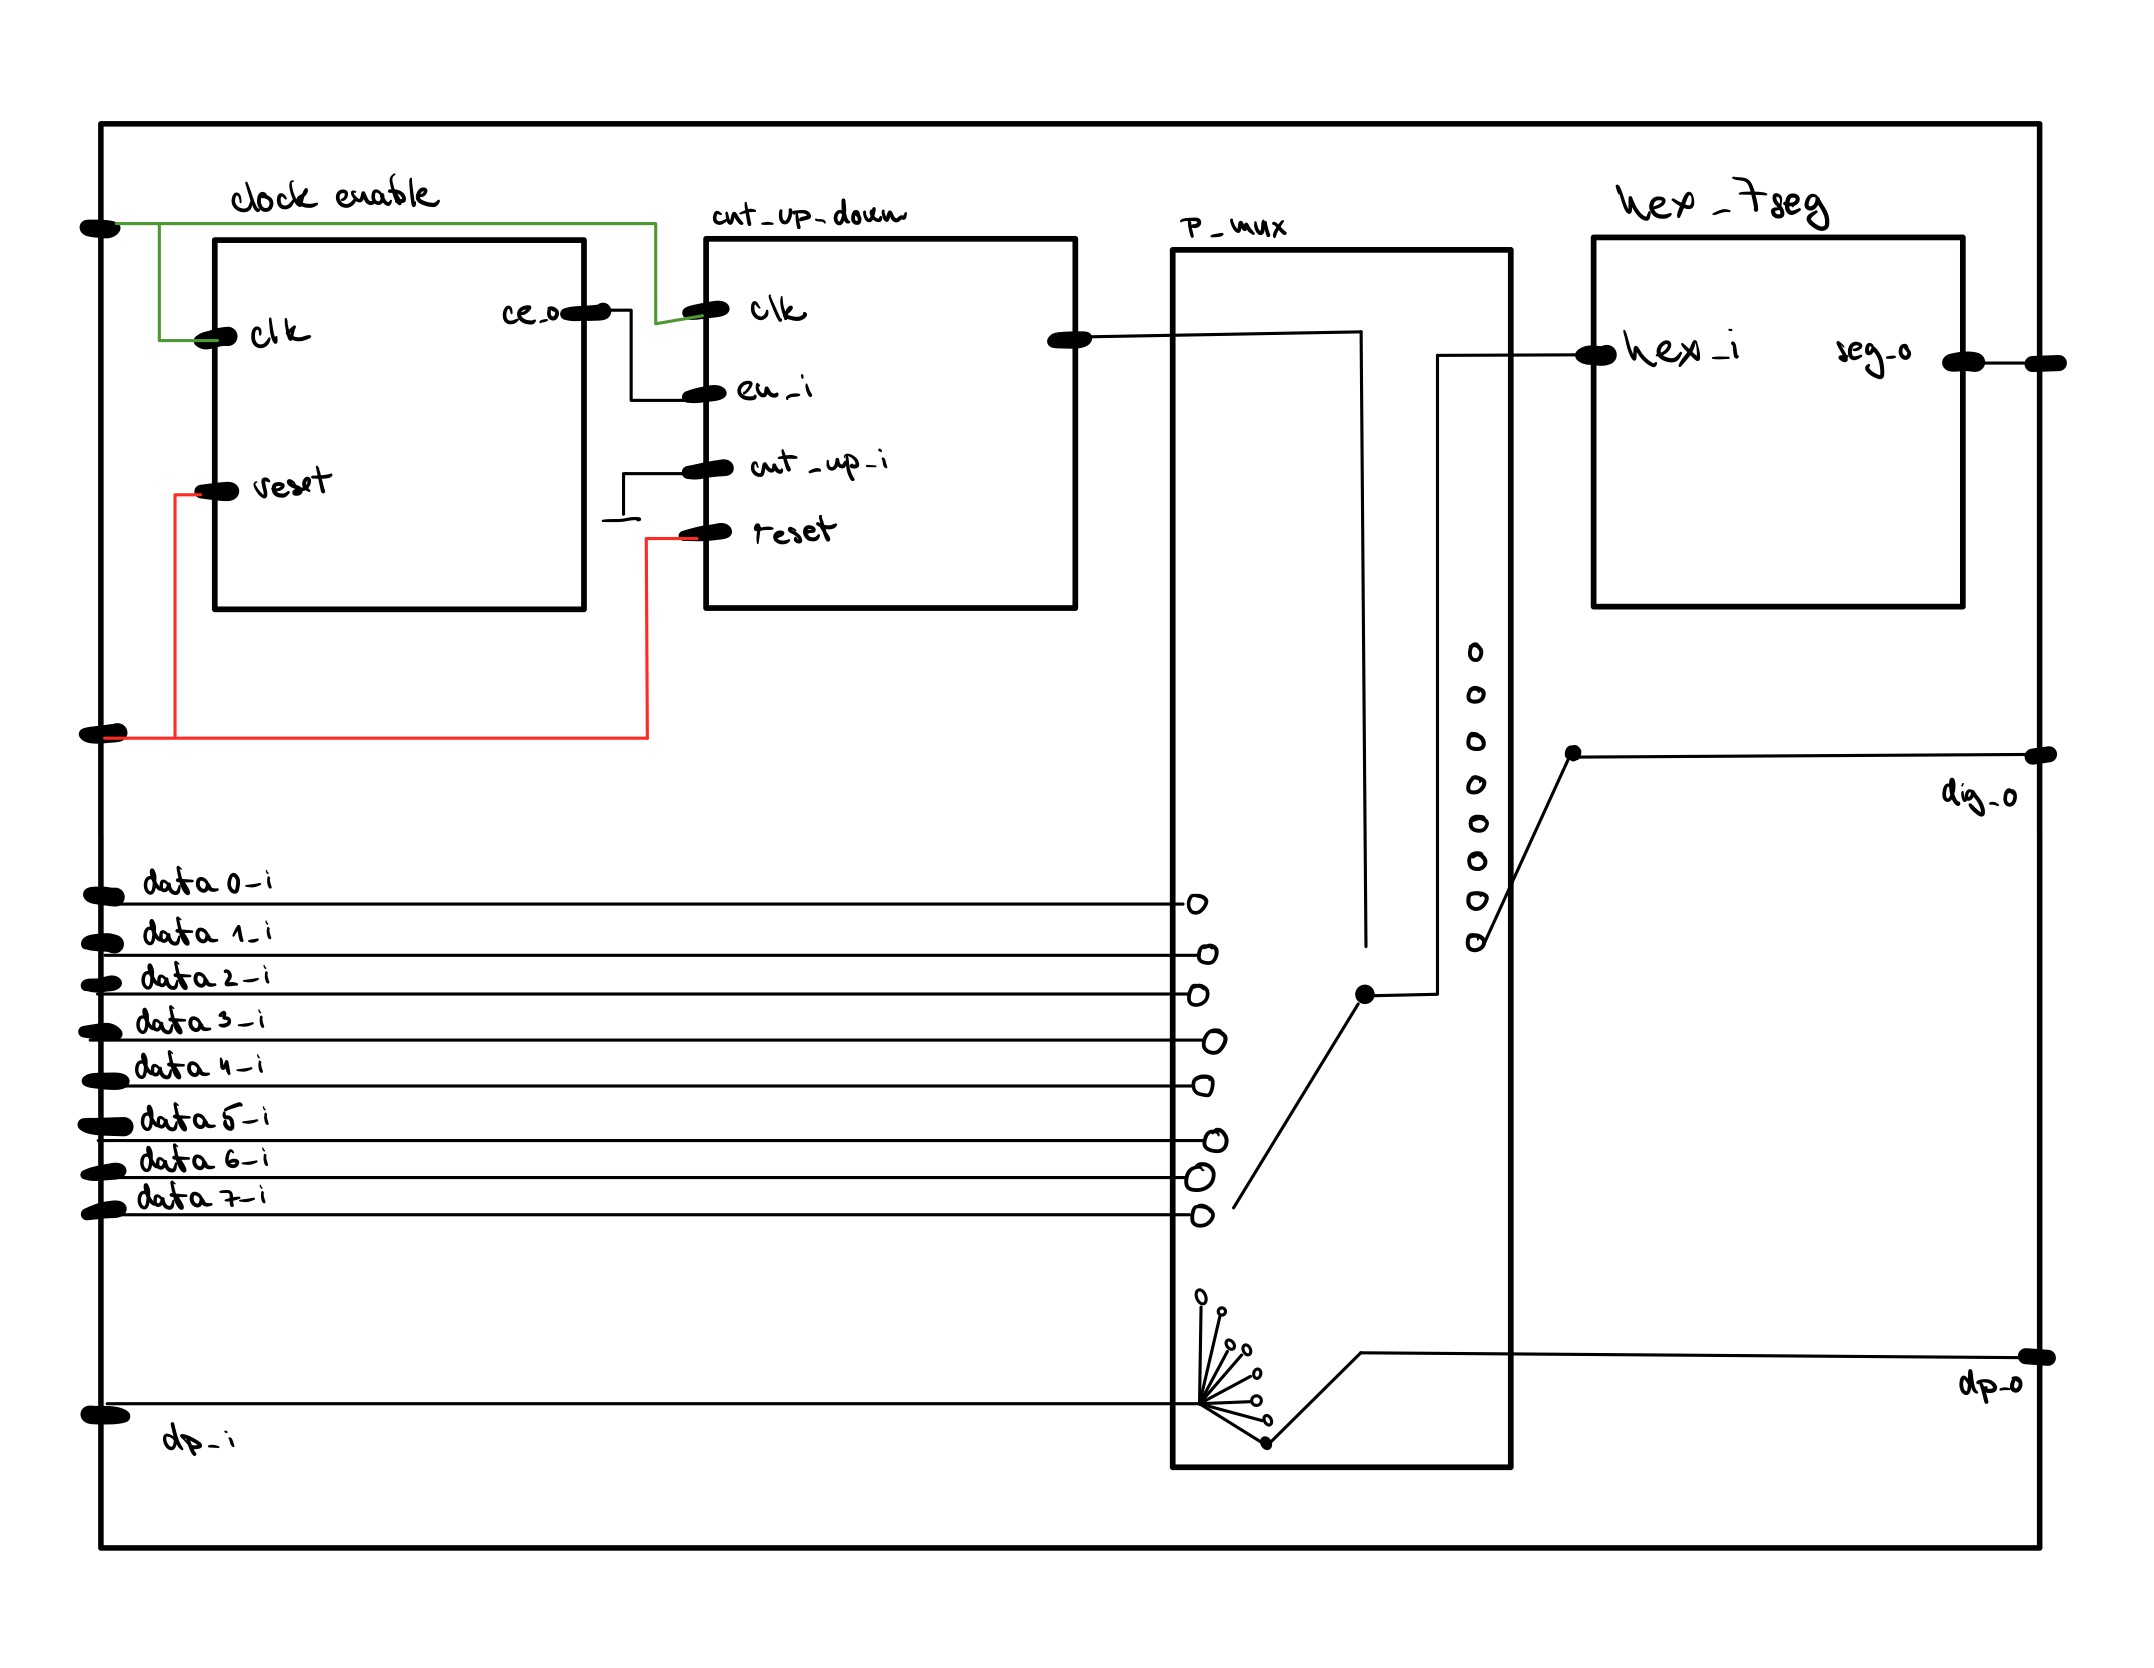 clock enable
clk
ce_o
reset
cnt_up_down
clk
en_i
cnt_up_i
reset
p_mux
hex_7seg
hex_i
seg_o
dig_o
data 0_i
data 1_i
data 2_i
data 3_i
data 4_i
data 5_i
data 6_i
data 7_i
dp_i
dp_o